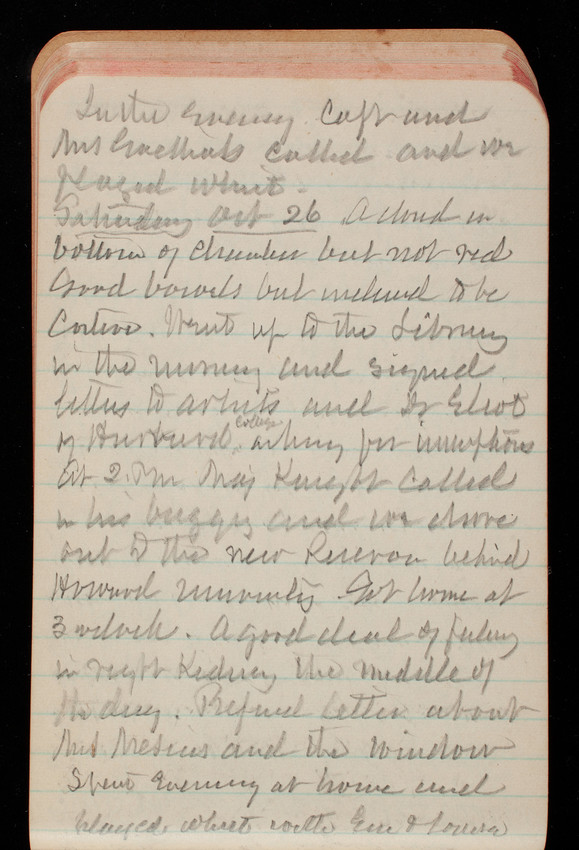 In the evening Capt and
Mrs Goethals called and we
played whist.
Saturday Oct 26 A cloud in
bottom of chamber but not red
Good bowels but inclined to be
Costive. Went up to the Library
in the morning and signed
letters to artists and Dr Eliot
of Harvard College asking for inscriptions
At 2 PM Maj Knight called
in his buggy and we drove
out to the new Reservoir behind
Howard University Got home at
3 oclock. A good deal of feeling
in right Kidney the middle of
the day. Prepared letter about
Mrs and the window
Spent Evening at home and
played whist with Em & Louisa